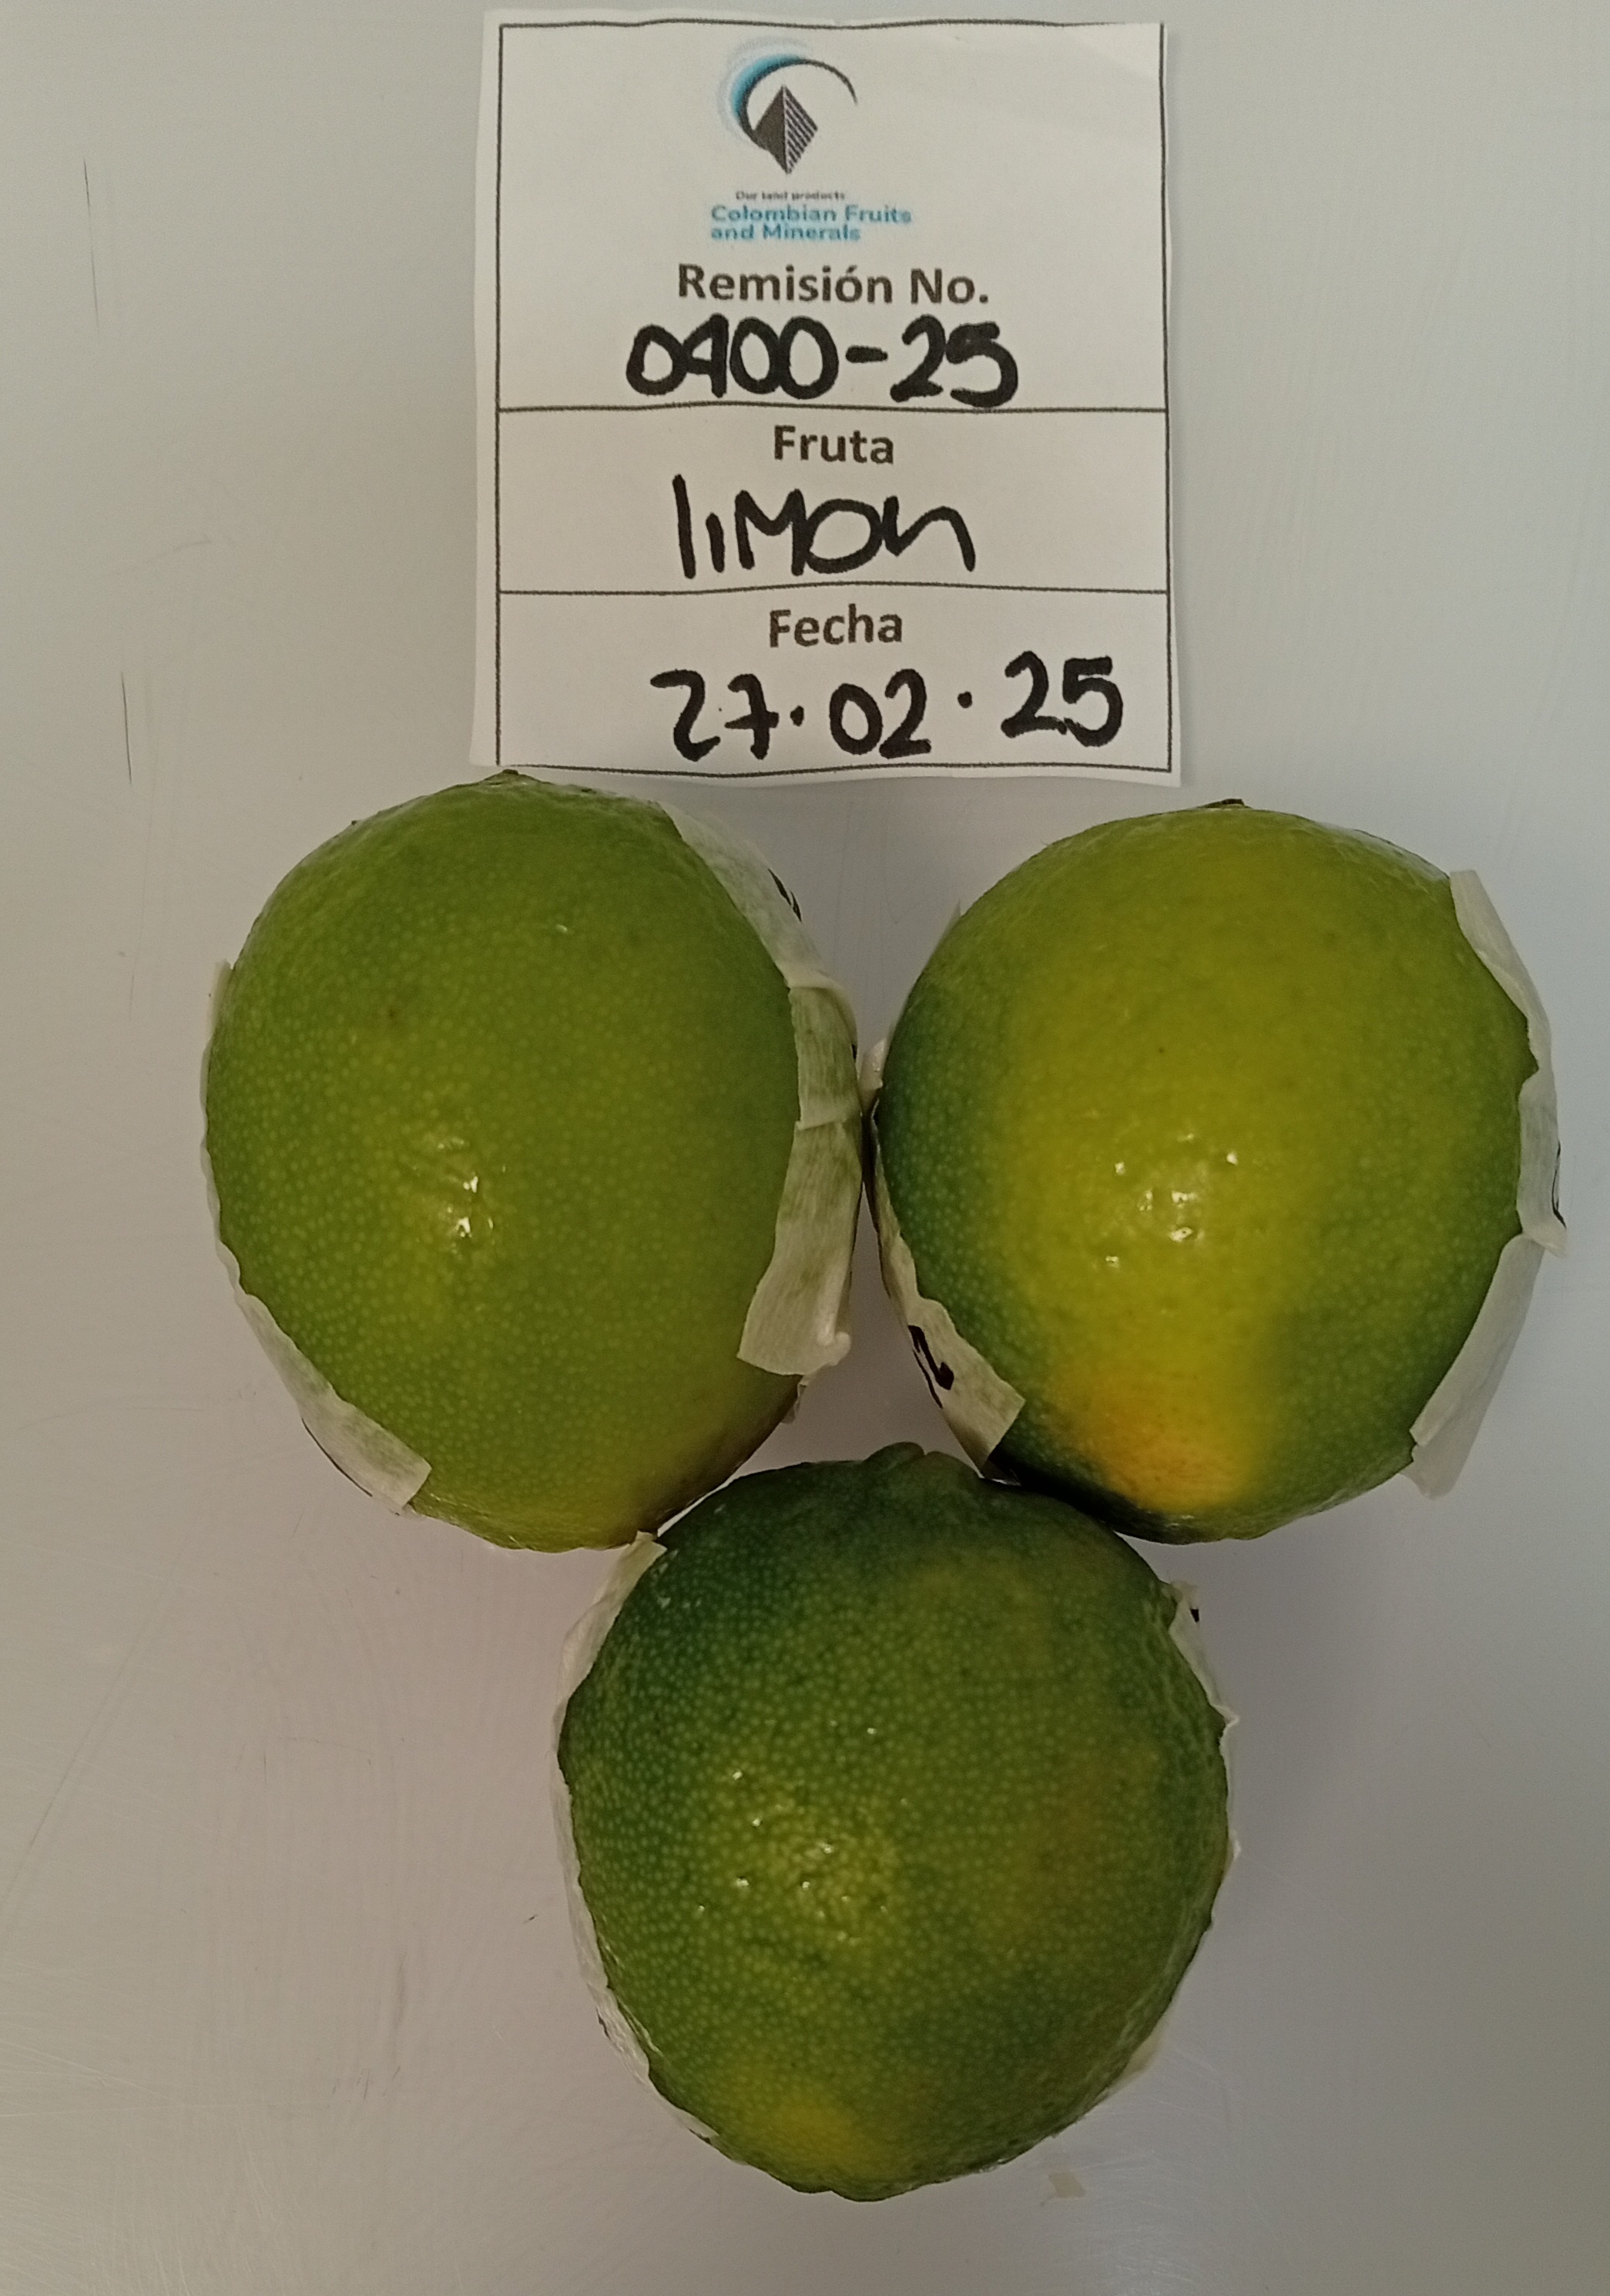 Our land products
Colombian Fruits
and Minerals
Remisión No.
0400-25
Fruta
limon
Fecha
27.02.25